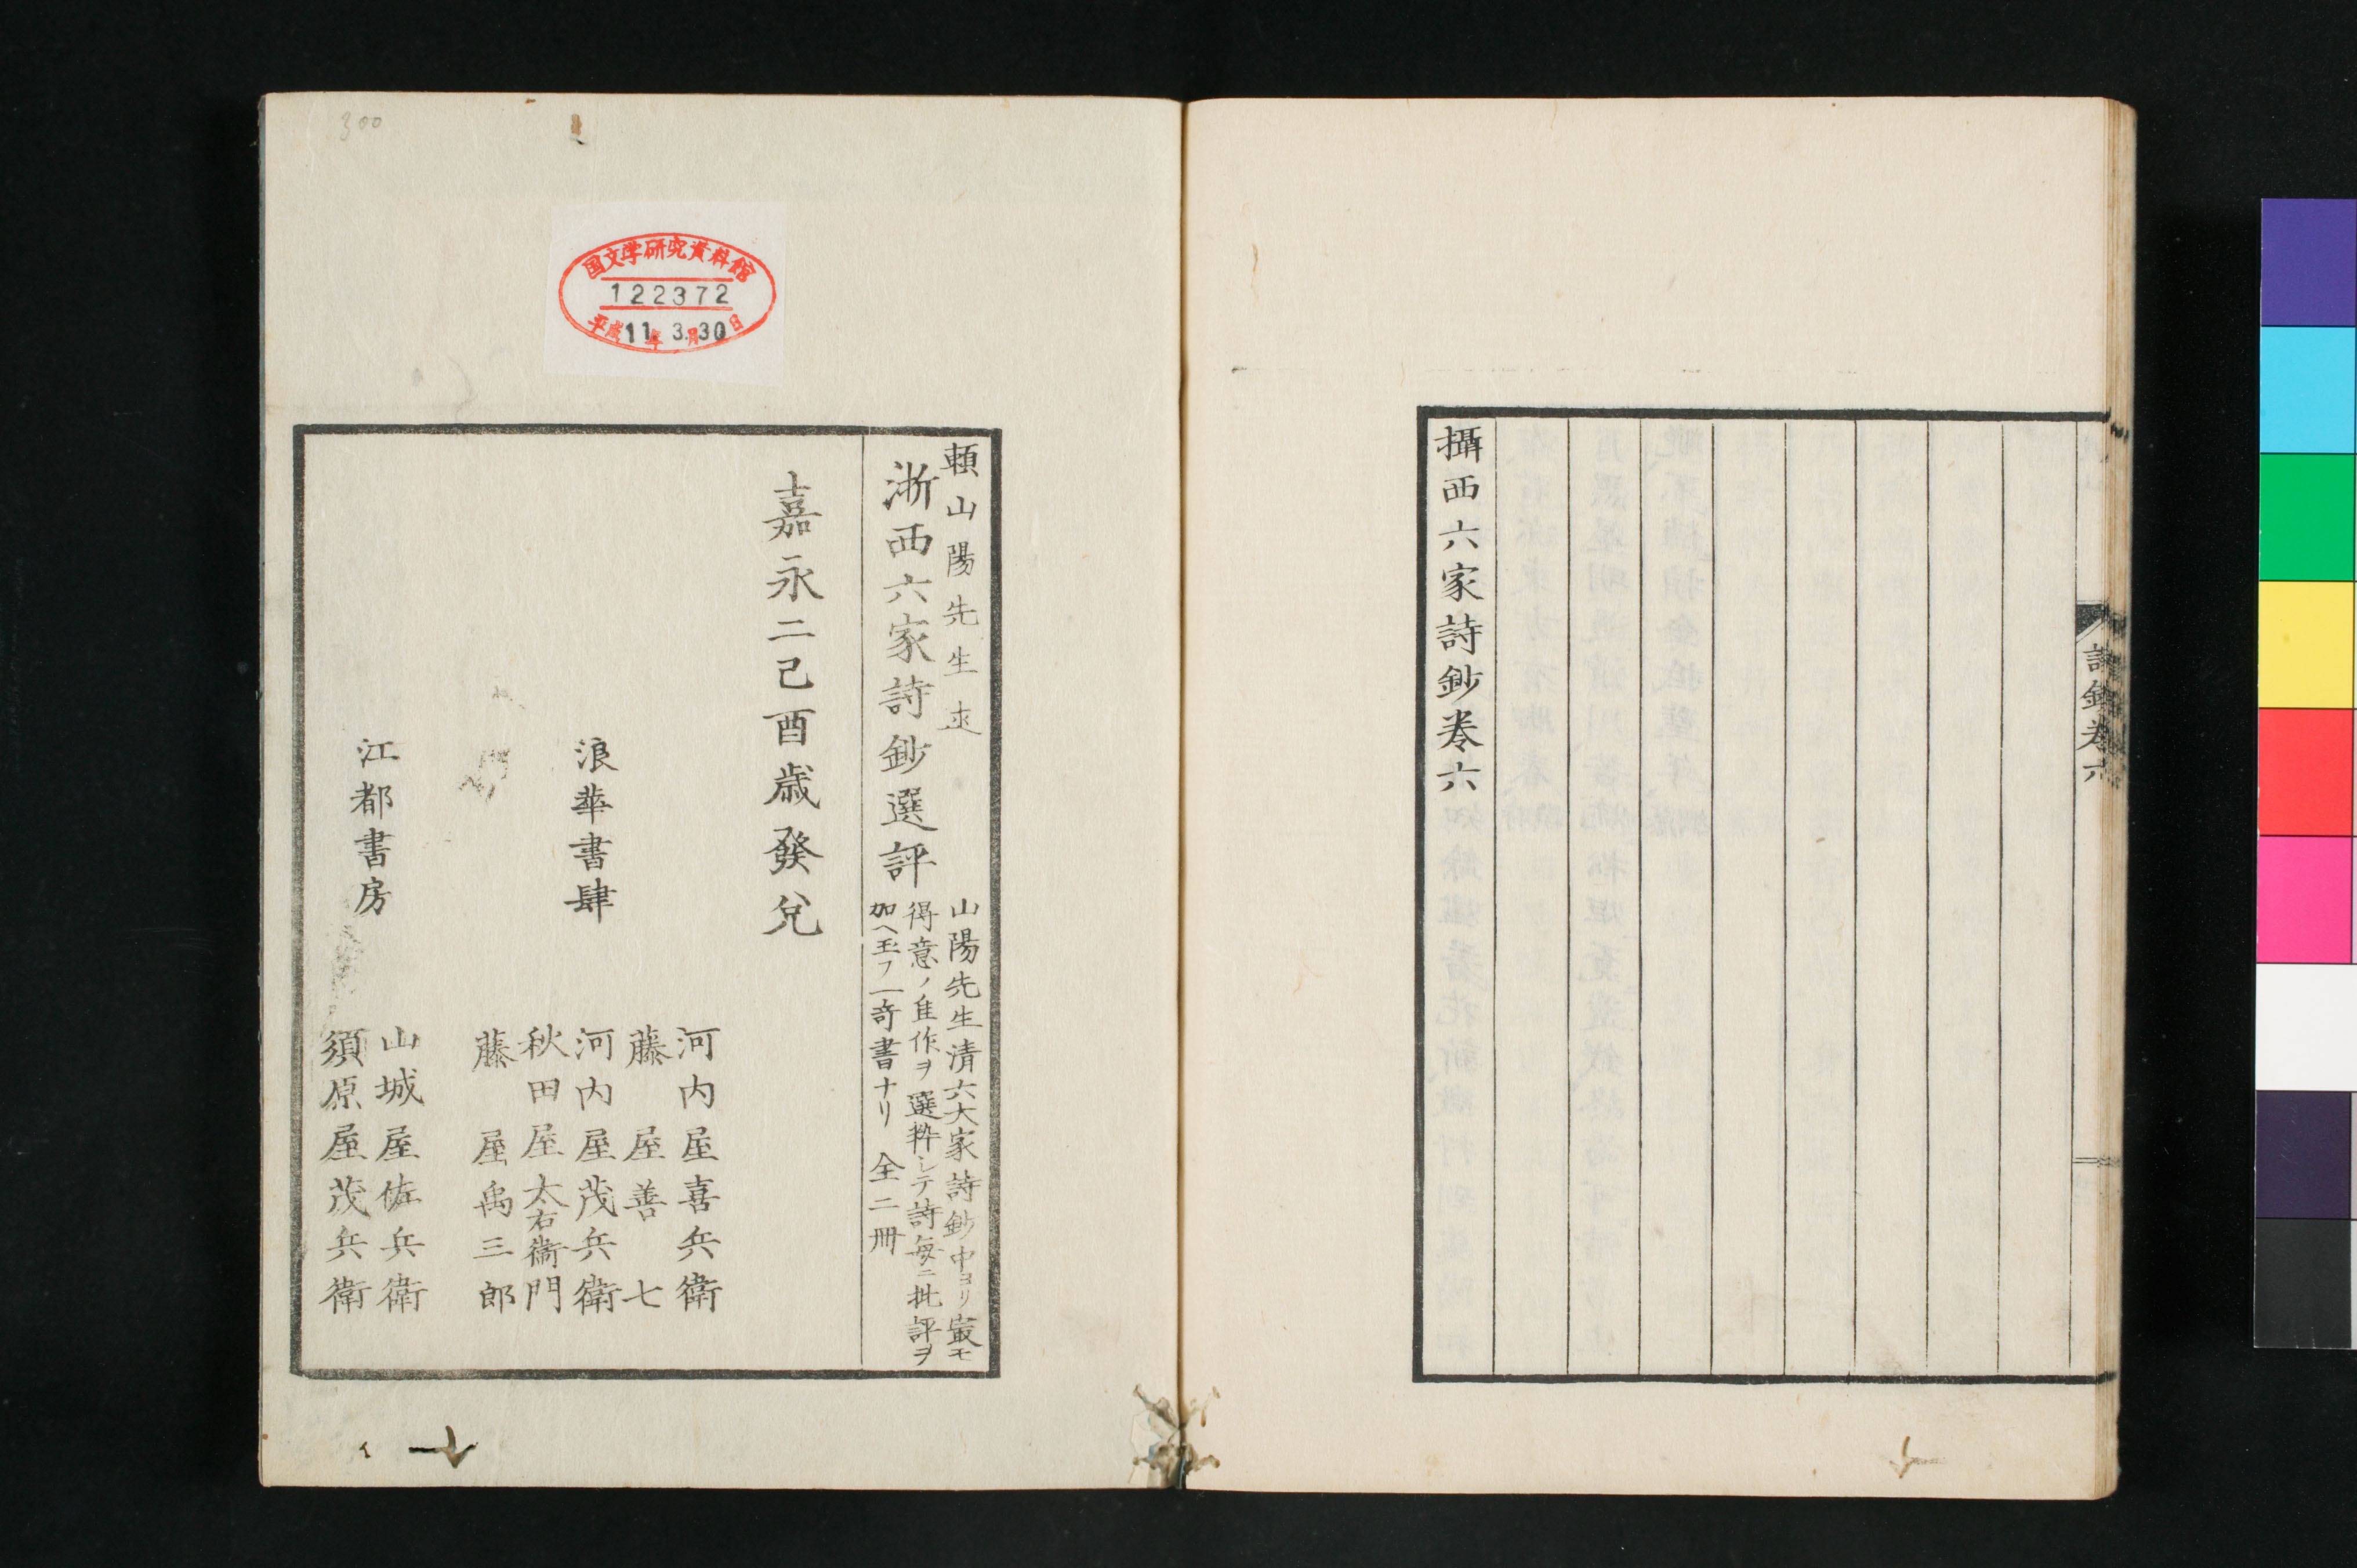 詩鈔卷六
攝西六家詩鈔卷六
300
国文学研究資料館
122372
平成11年3月30日
頼山陽先生
浙西六家詩鈔選評
山陽先生清六大家詩鈔中ヨリ㝡モ
得意ノ佳作ヲ選粋シテ詩毎ニ批評ヲ
加ヘ玉フ一奇書ナリ 全二冊
嘉永二己酉歳發兌
浪華書肆
河内屋喜兵衛
藤屋善七
河内屋茂兵衛
秋田屋太右衞門
藤屋禹三郎
江都書房
山城屋佐兵衛
須原屋茂兵衛